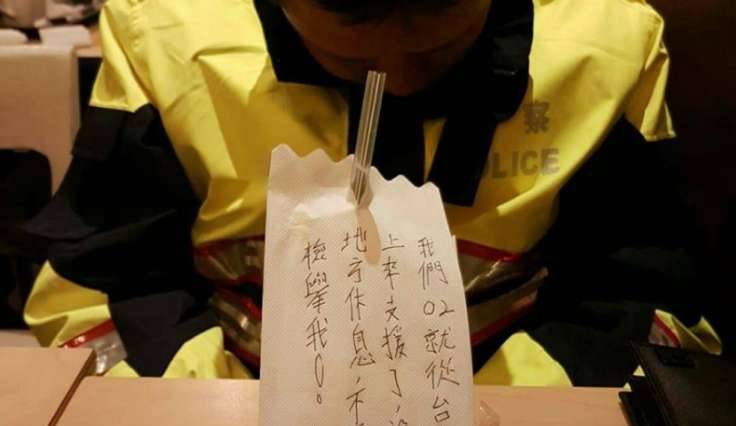 我們02就從台
上來支援了，
地方休息，不
檢舉我
察
OLICE